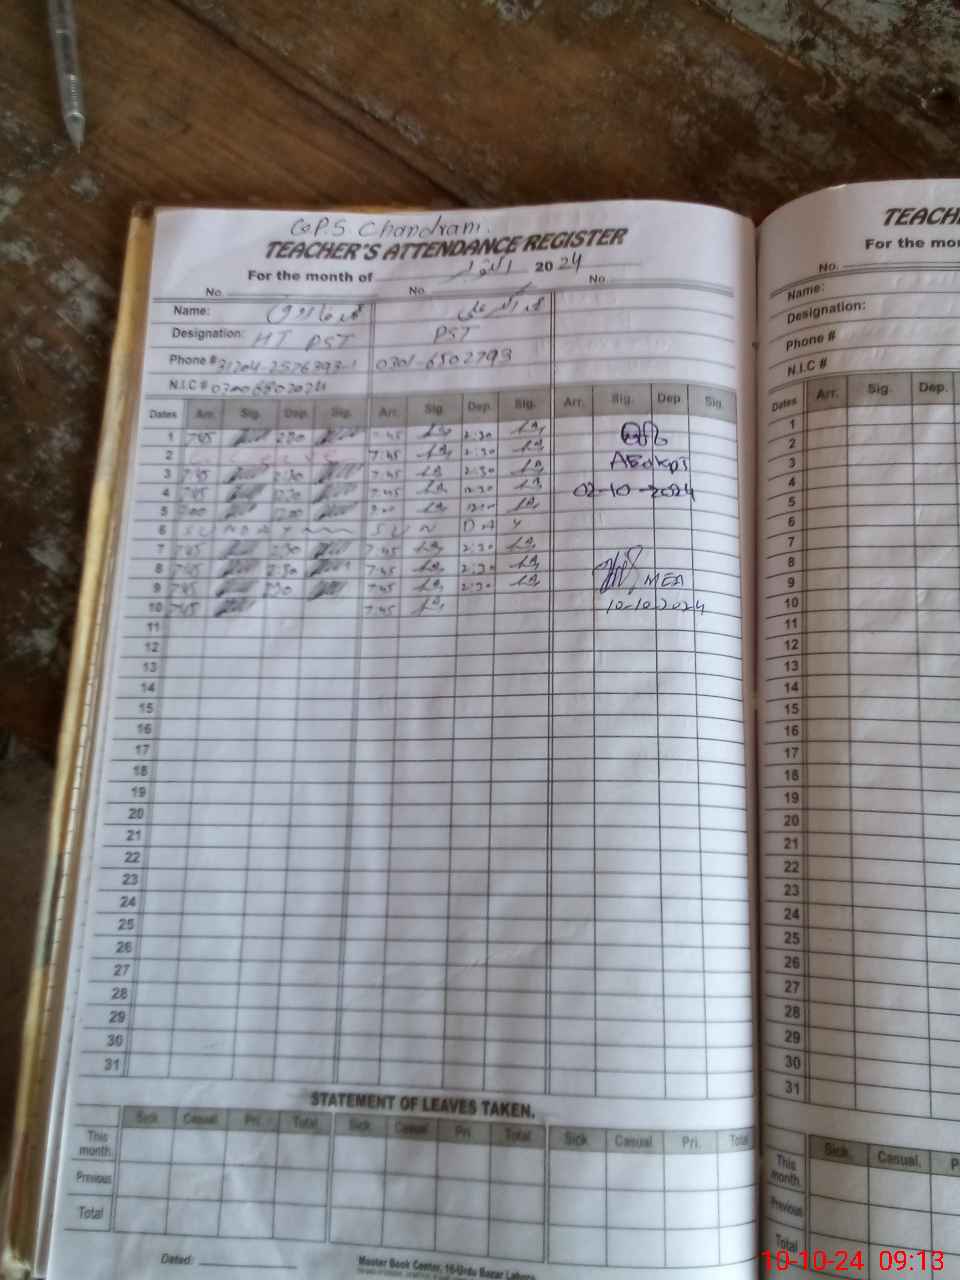 G.P.S. Chandram.
TEACHER'S ATTENDANCE REGISTER
For the month of اکتوبر 2024
No. No. No.
Name:
Designation: HT PST PST
Phone # 0301-6802793
N.I.C #
Dates Arr. Sig. Dep. Sig. Arr. Sig. Dep. Sig. Arr. Sig. Dep Sig.
1 7:45 2:30 7:45 2:30
2 7:45 2:30
3 7:45 2:30 7:45 2:30 AEO KPT
4 7:45 7:45 12:30 02-10-2024
5 8:00 12:00 8:00 12:00
6 SUNDAY SUN DAY
7 7:45 2:30 7:45 2:30
8 7:45 2:30 7:45 2:30
9 7:45 2:30 7:45 2:30 MEA
10 7:45 7:45 10-10-2024
11
12
13
14
15
16
17
18
19
20
21
22
23
24
25
26
27
28
29
30
31
STATEMENT OF LEAVES TAKEN.
Sick Casual Pri. Total Sick. Casual Pri. Total Sick. Casual. Pri. Total
This month.
Previous
Total
Dated:
Master Book Center, 16-Urdu Bazar Lahore
TEACH
For the mon
No.
Name:
Designation:
Phone #
N.I.C #
Dates Arr. Sig. Dep.
1
2
3
4
5
6
7
8
9
10
11
12
13
14
15
16
17
18
19
20
21
22
23
24
25
26
27
28
29
30
31
Sick. Casual. P
This month.
Previous
Total
10-10-24 09:13